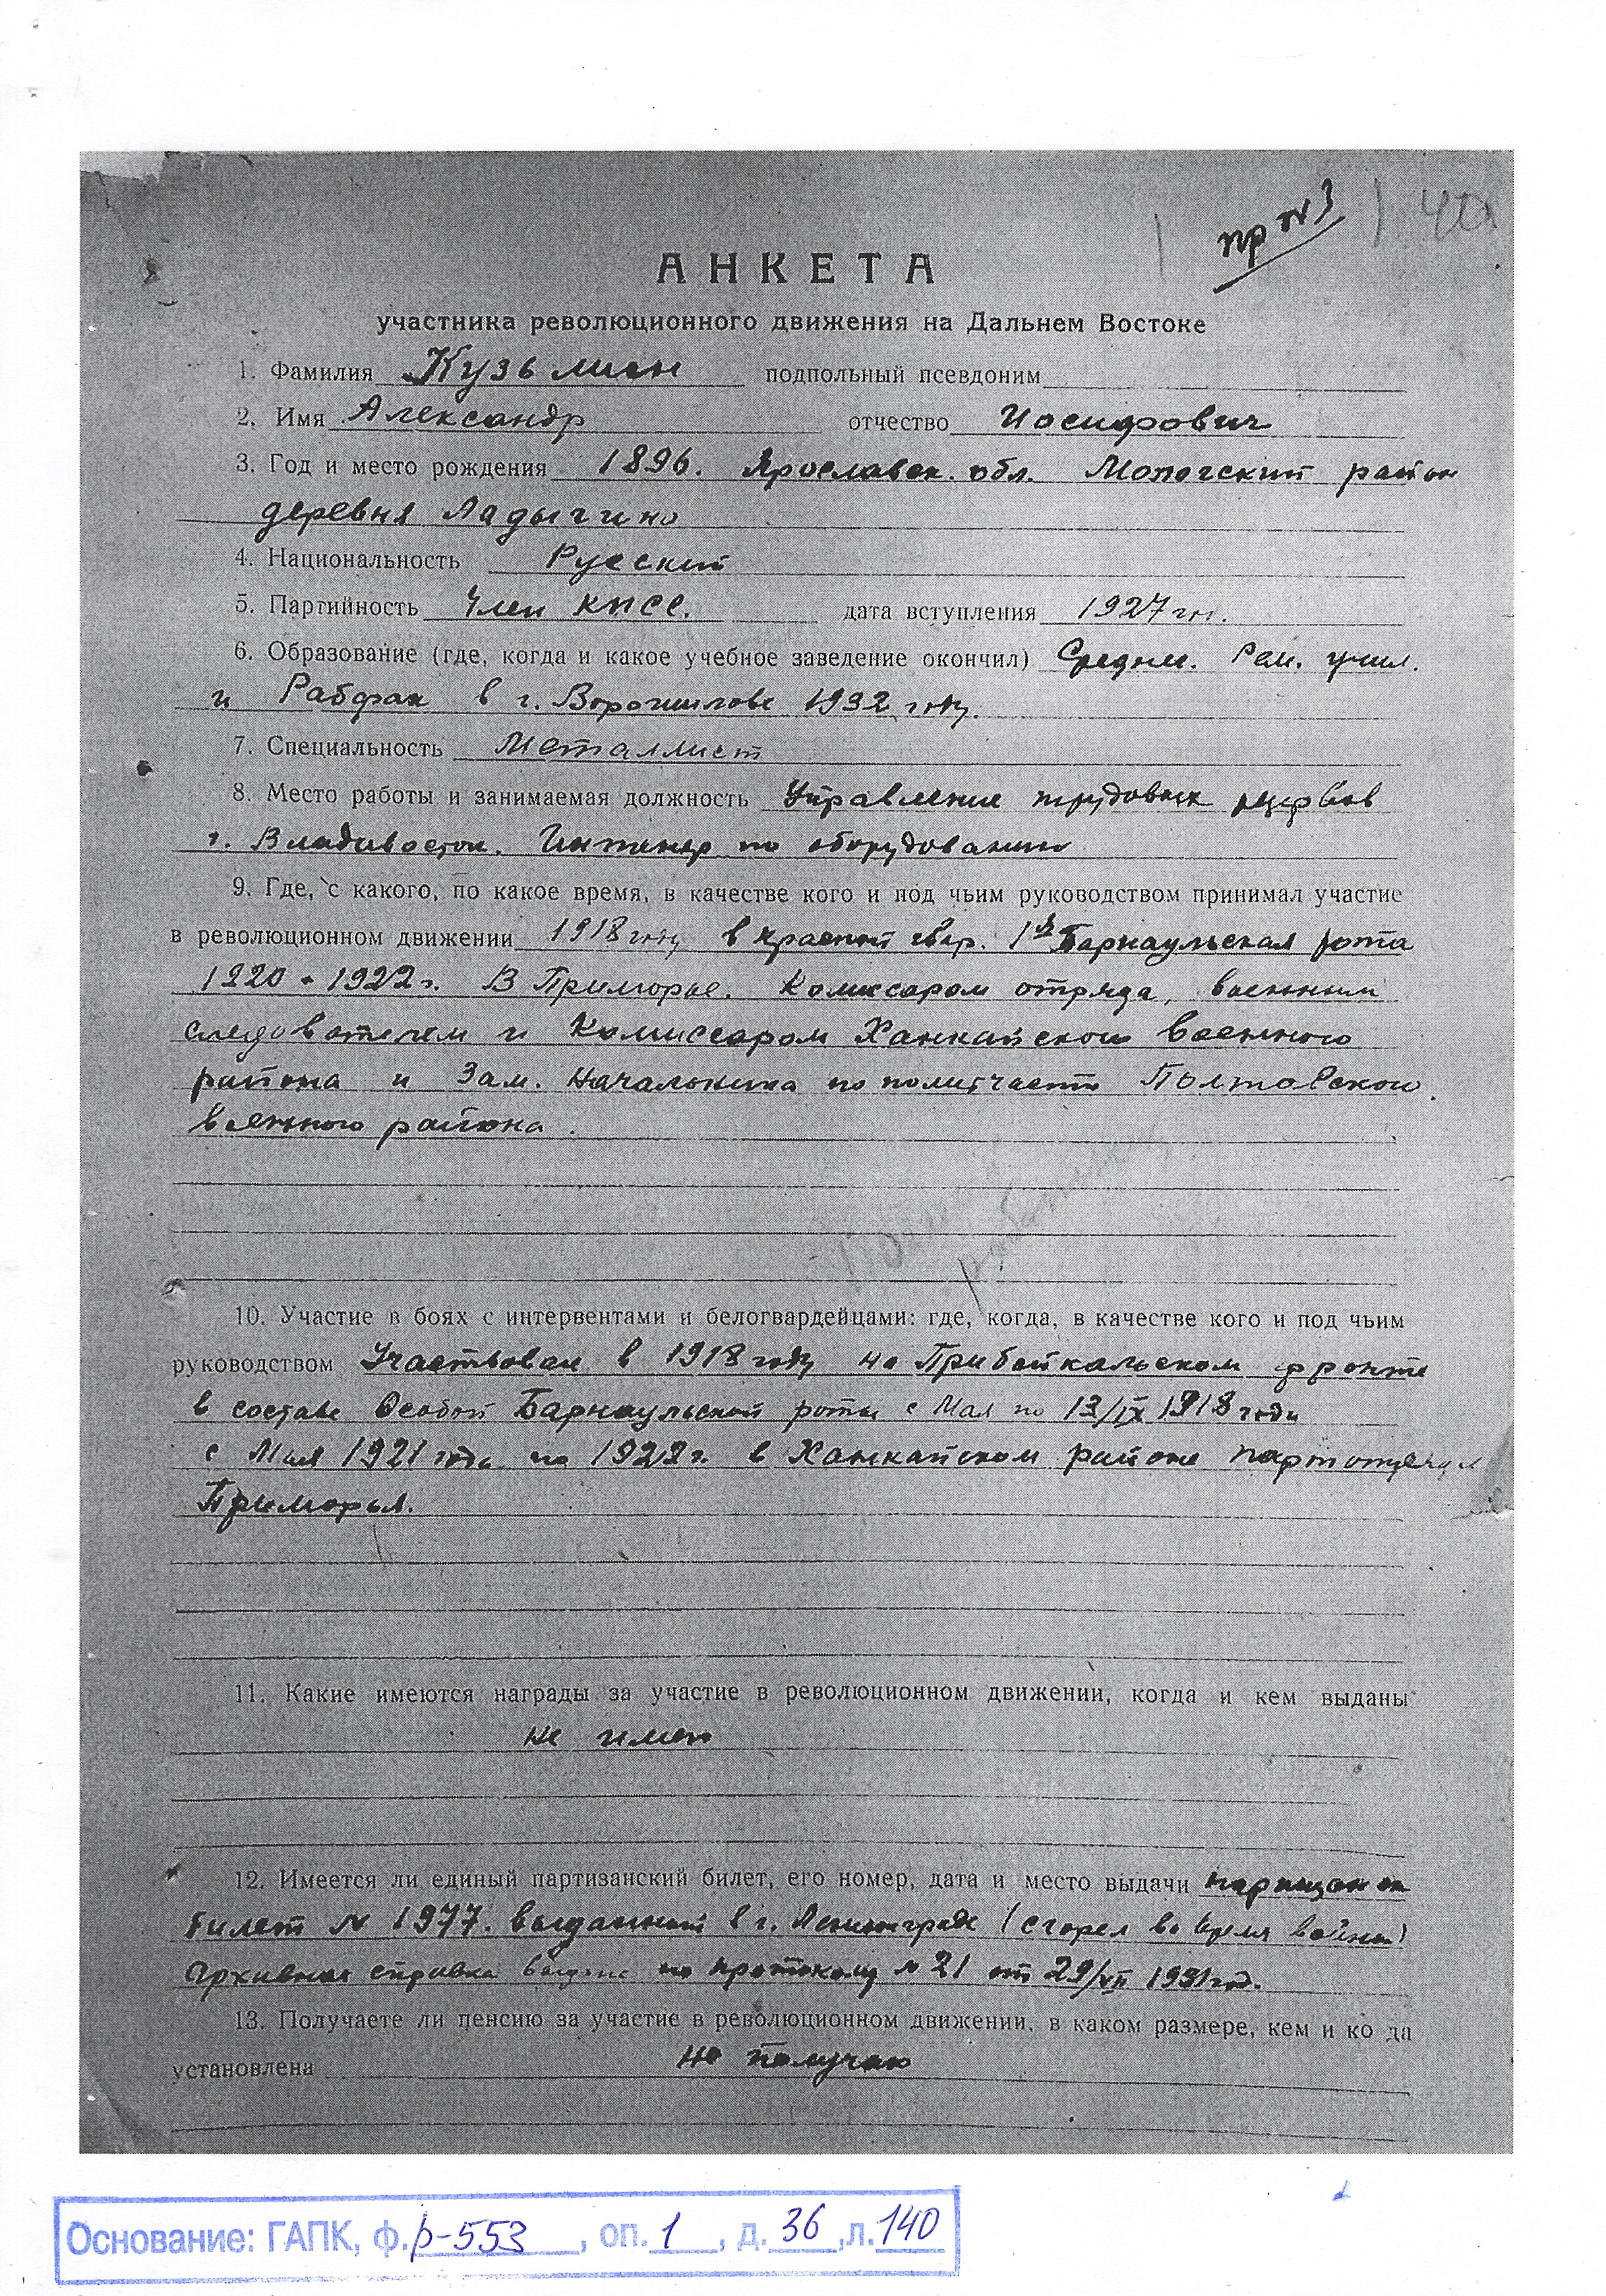 пр №3
140
АНКЕТА
участника революционного движения на Дальнем Востоке
1. Фамилия Кузьмин подпольный псевдоним
2. Имя Александр отчество Иосифович
3. Год и место рождения 1896. Ярославск. обл. Мологский район
деревня Ладыгино
4. Национальность Русский
5. Партийность Член КПСС. дата вступления 1927 г.
6. Образование (где, когда и какое учебное заведение окончил) Средне. Рем. учил.
и Рабфак в г. Ворошилове 1932 году.
7. Специальность Металлист
8. Место работы и занимаемая должность Управление трудовых резервов
г. Владивосток. Инженер по оборудованию
9. Где, с какого, по какое время, в качестве кого и под чьим руководством принимал участие
в революционном движении 1918 году в красной гвар. 1я Барнаульская рота
1920 - 1922 г. В Приморье. Комиссаром отряда, военным
следователем и Комиссаром Ханкайского военного
района и Зам. Начальника по политчасти Полтавского
военного района.
10. Участие в боях с интервентами и белогвардейцами: где, когда, в качестве кого и под чьим
руководством Участвовал в 1918 году на Прибайкальском фронте
в составе Особой Барнаульской роты с Мая по 13/IX 1918 года
с Мая 1921 года по 1922 г. в Ханкайском районе партотряда
Приморья.
11. Какие имеются награды за участие в революционном движении, когда и кем выданы
не имею
12. Имеется ли единый партизанский билет, его номер, дата и место выдачи партизанск
билет № 1977. выданный в г. Ленинграде (сгорел во время войны)
Архивная справка выдана по протоколу № 21 от 29/VII 1931 год.
13. Получаете ли пенсию за участие в революционном движении, в каком размере, кем и ко да
установлена не получаю
Основание: ГАПК, ф. р-553, оп. 1, д. 36, л. 140